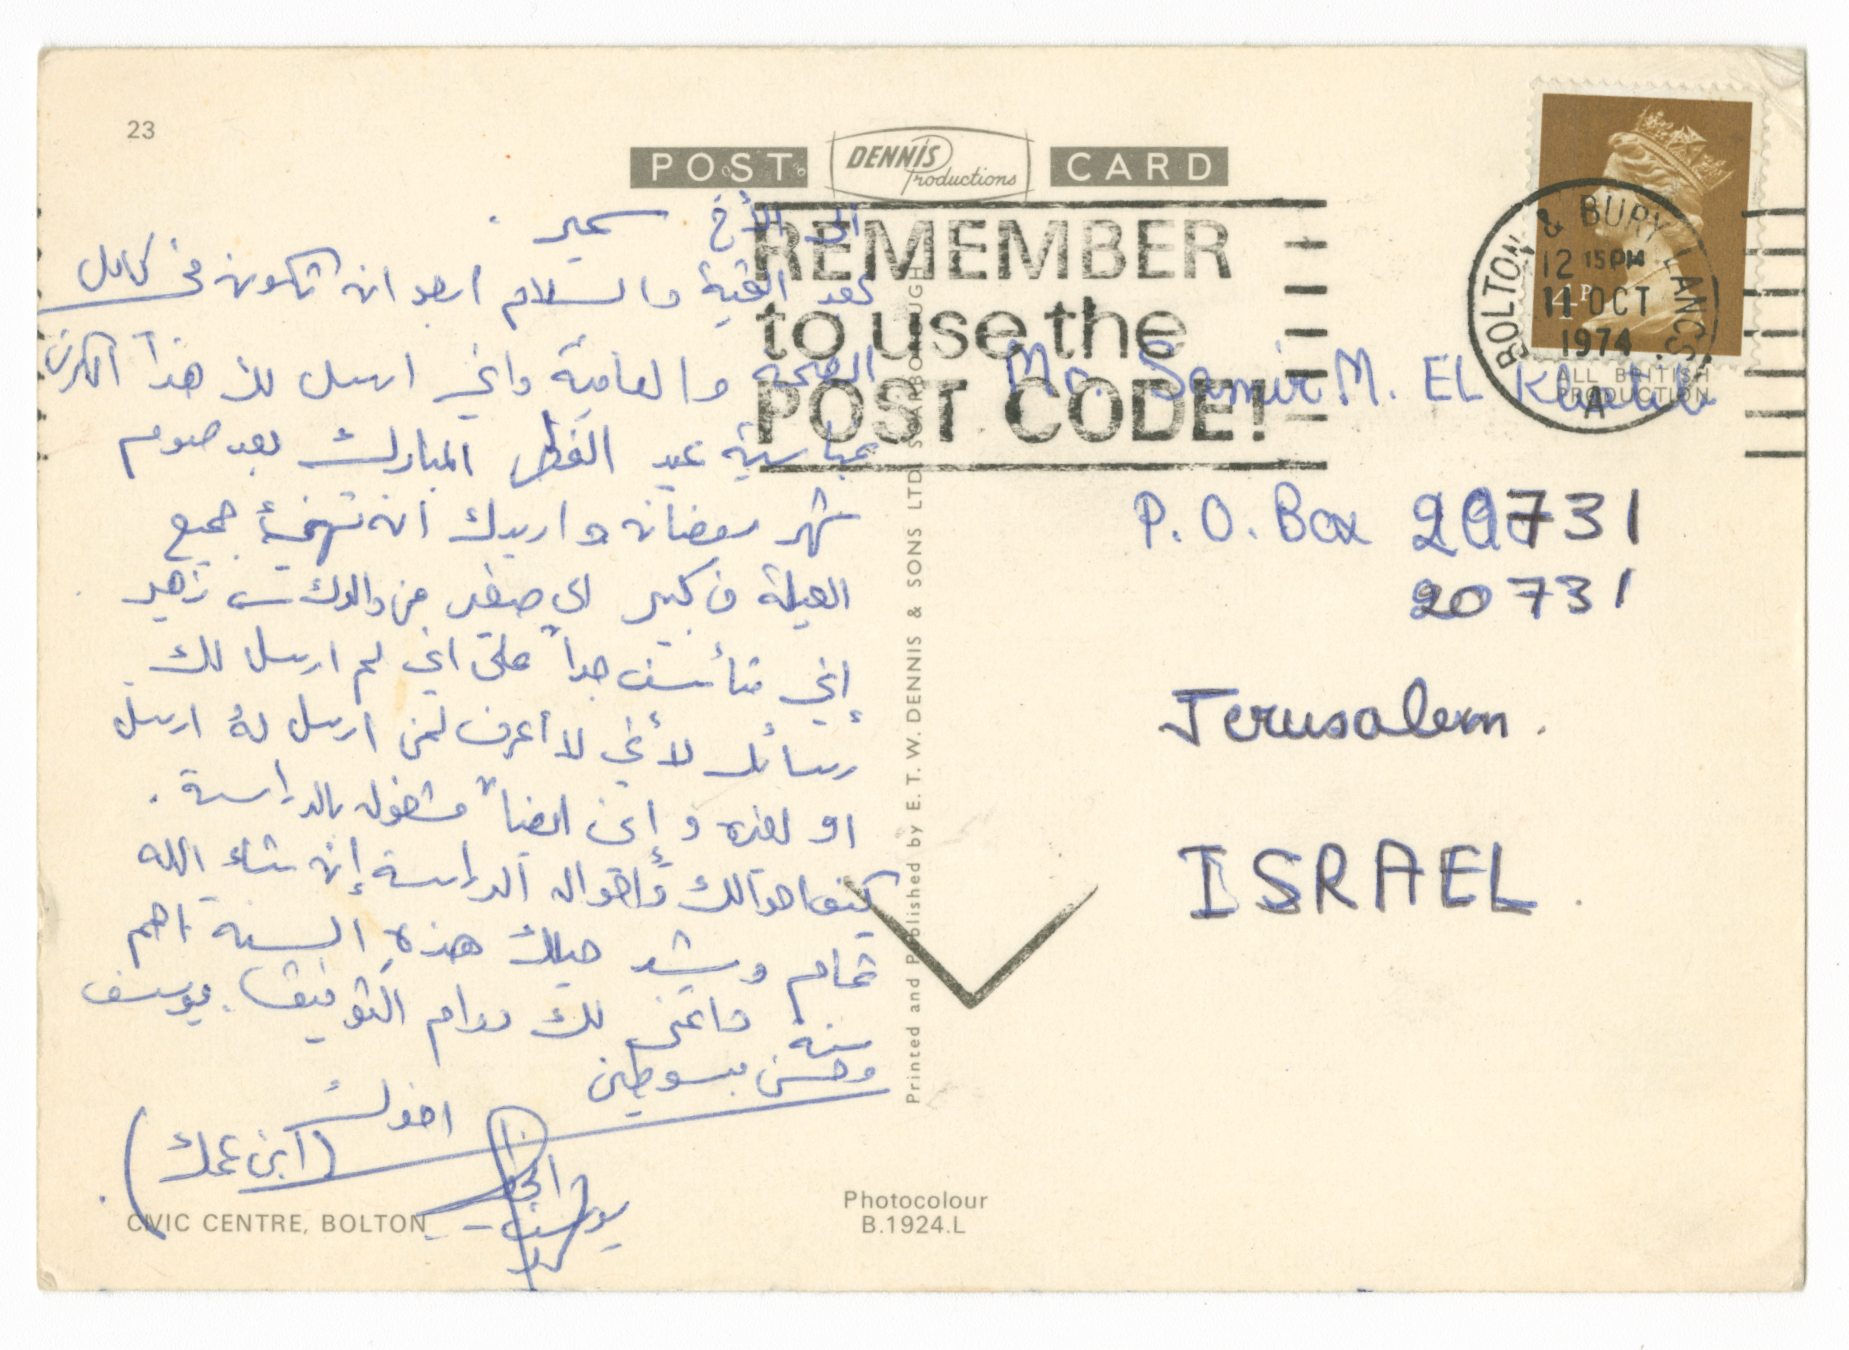 23
POST DENNIS Productions CARD
REMEMBER
to use the
POST CODE!
BOLTON & BURY LANCS.
12 15PM
11 OCT
1974
A
4P
ALL BRITISH
PRODUCTION
الى الأخ سمير .
بعد التحية والسلام ارجو ان تكون في كامل
الصحة والعافية واني ارسل لك هذا الكرت
بمناسبة عيد الفطر المبارك بعد صوم
شهر رمضان واريدك أن تهنئ جميع
العيلة من كبير الى صغير من والدك زهير
إني متأسف جداً على اني لم ارسل لك
رسائل لأني لا أعرف لمن ارسل له ارسل
او لغيره و إني ايضاً مشغول بالدراسة .
كيف احوالك وأحوال الدراسة إن شاء الله
تمام وشد حيلك هذه السنة اهم
سنة واتمنى لك دوام التوفيق . يوسف
وحسن مبسوطين
اخوك
(ابن عمك)
Mr. Samir M. EL Khatib
P. O. Box 20731
20731
Jerusalem.
ISRAEL.
Printed and Published by E. T. W. DENNIS & SONS LTD. SCARBOROUGH
CIVIC CENTRE, BOLTON
Photocolour
B.1924.L